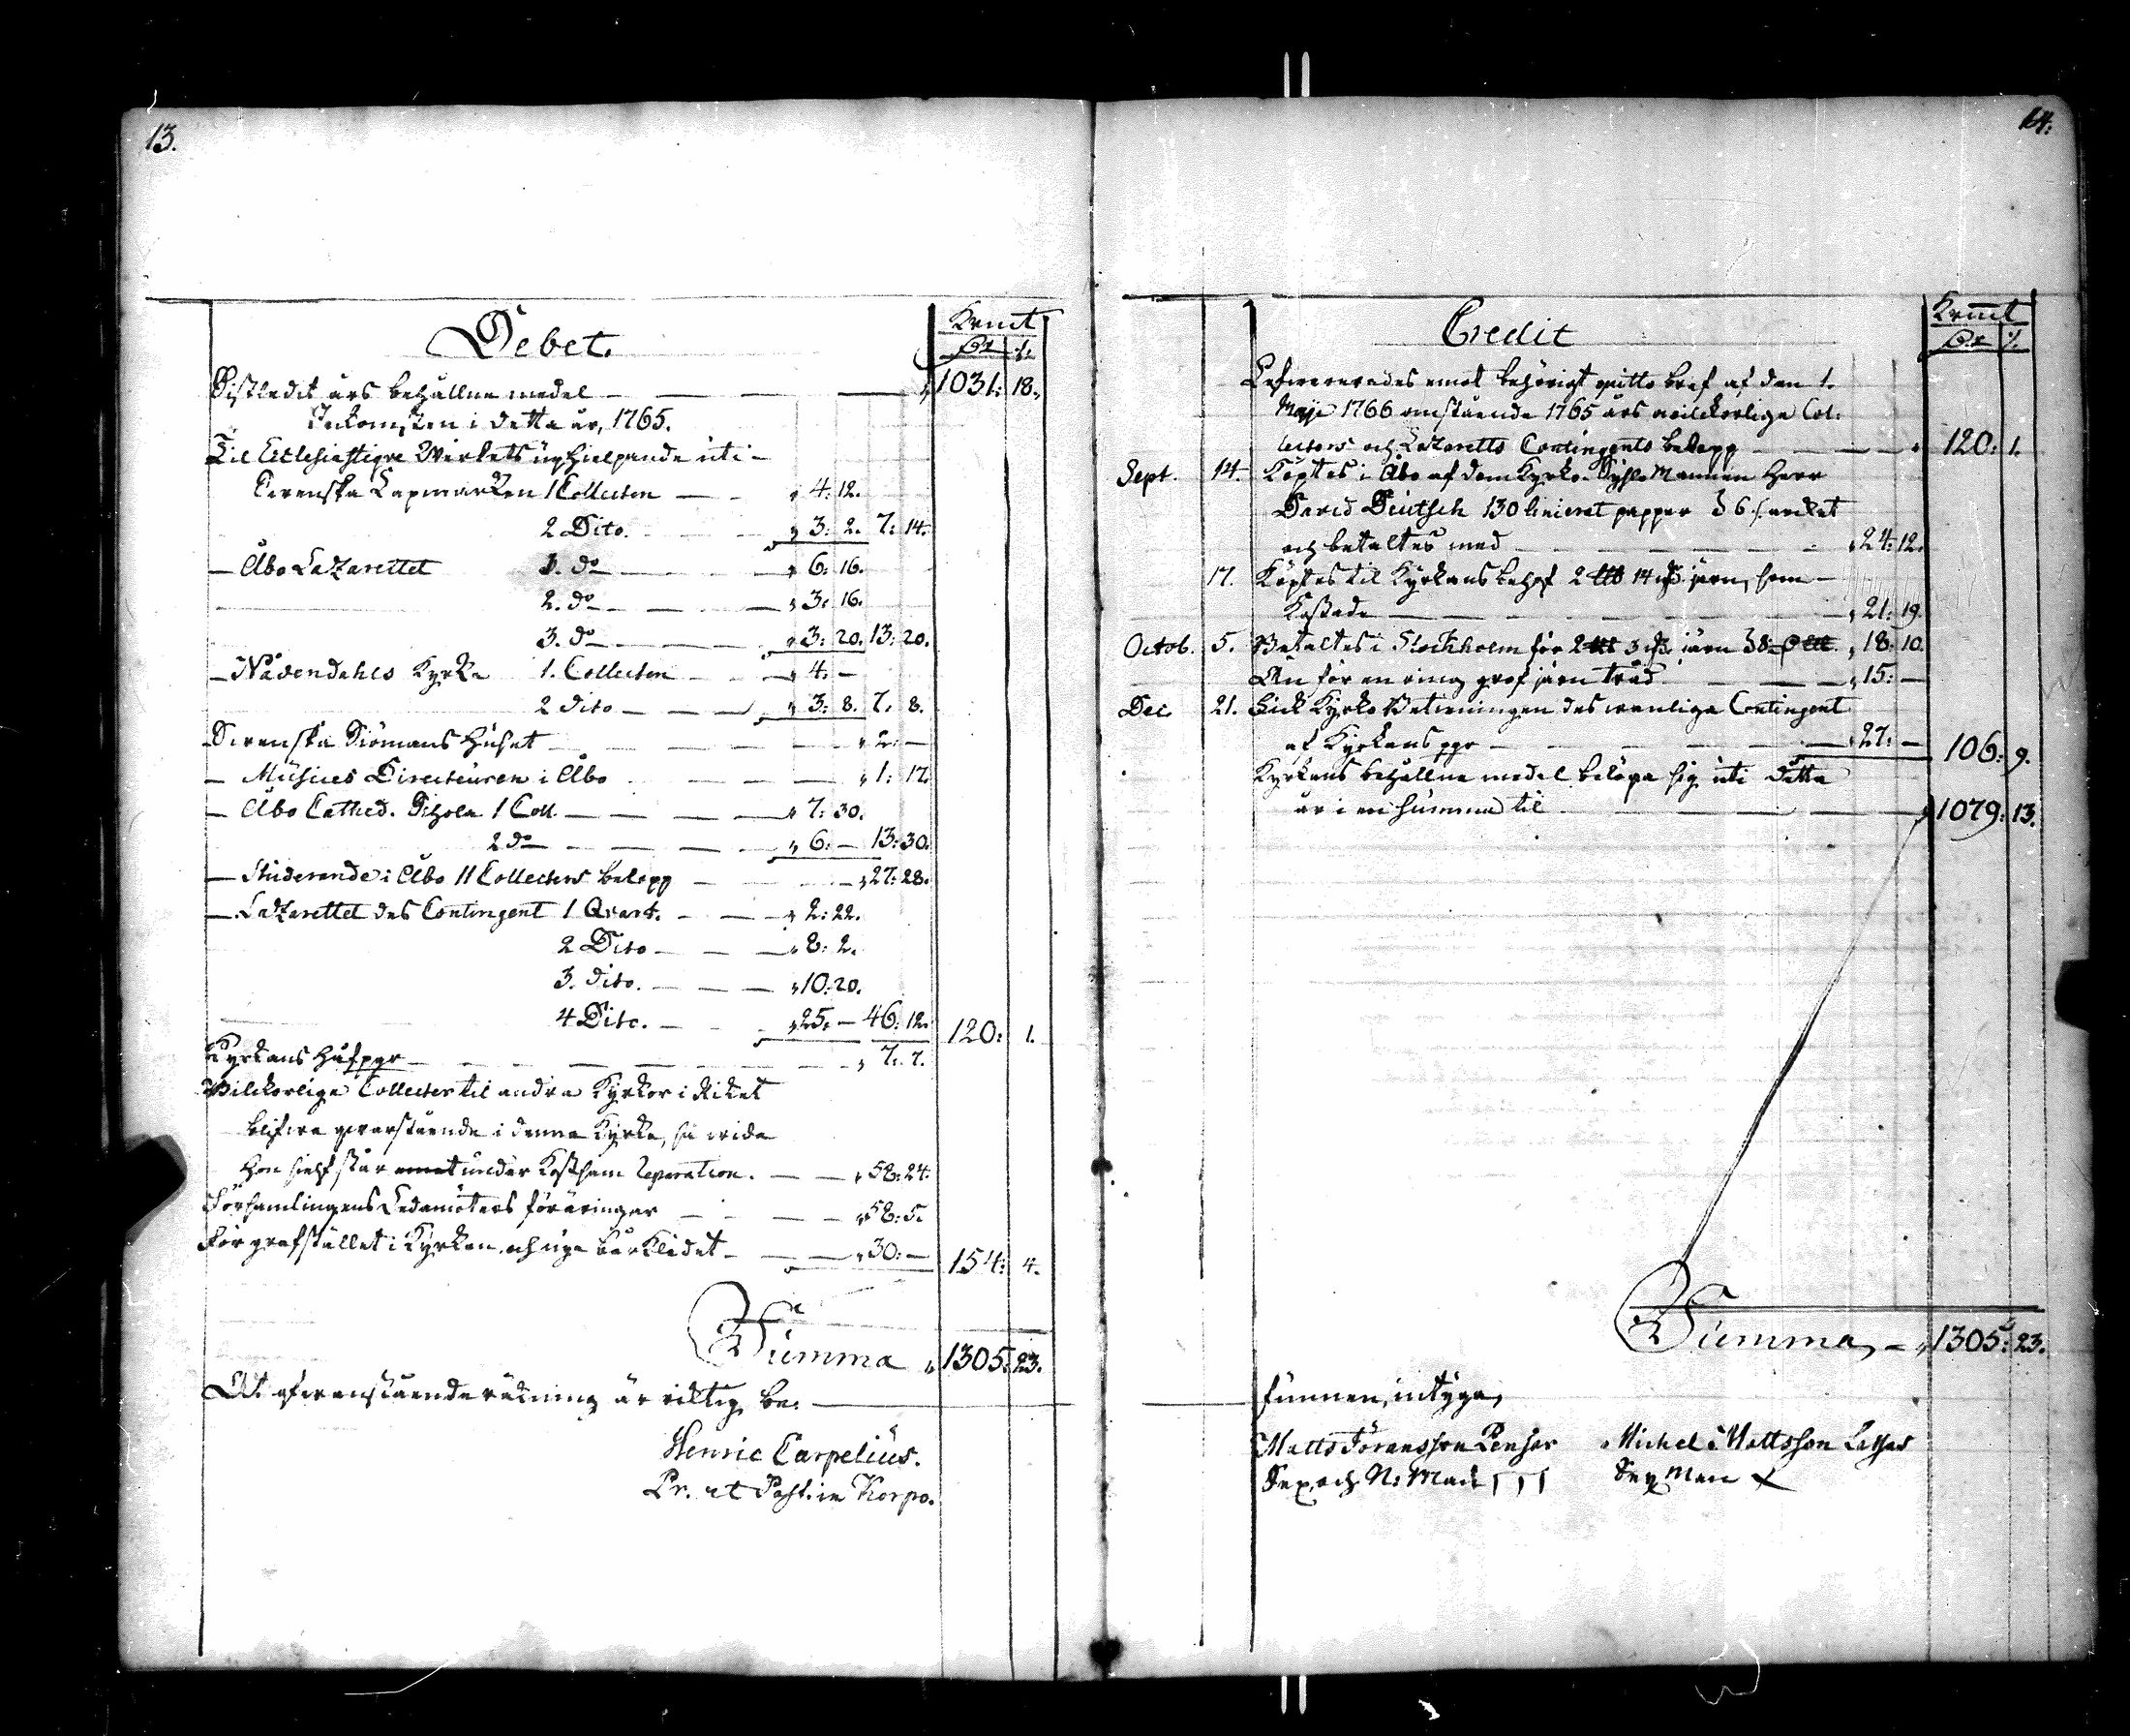 13.
Debet.
Krmt
Dr | /.
Sistledit års behållne medel — — — " 1031: 18.
Inkomsten i detta år, 1765.
Til Ecclesiastique Werkets uphielpande uti —
Svenska Lapmarken 1 Collecten — " 4: 12.
2 Dito. — " 3: 2. 7: 14.
— Åbo Lazarettet 1. do — " 6: 16.
2. do — " 3: 16.
3. do — " 3: 20. 13: 20.
— Nådendahls Kyrka 1. Collecten — " 4: —
2 dito — " 3: 8. 7: 8.
Svenska Siömans Huset — " 2: —
— Musices Directeuren i Åbo — " 1: 17.
— Åbo Cathed. Schola 1 Coll. — " 7: 30.
2 do — " 6: — 13: 30.
— Studerande i Åbo 11 Collecters belopp — " 27: 28.
— Lazarettet des Contingent 1 Qvart. — " 2: 22.
2 Dito — " 8: 2.
3. dito. — " 10: 20.
4 Dito. — " 25: — 46: 12. 120: 1.
Kyrkans Håfpgr — " 7: 7.
Wilckorlige Collecter til andra Kyrkor i Riket
blifwa qvarstående i denna Kyrka, så wida
hon sielf står under Kostsam Reparation. — " 58: 24.
Församlingens Ledamöters föräringar — " 58: 5.
För grafstället i Kyrkan, och nya Bårklädet — " 30: — 154: 4.
Summa " 1305: 23.
At ofwanstående räkning är richtig be: —
Henric Carpelius.
Pr. et Past. in Korpo.
14:
Credit
Krmt
Dr | /.
Lefwererades emot behörigt quitto bref af den 1.
Maji 1766 omstående 1765 års wilckorlige Col:
lecters och Lazaretts Contingents belopp — " 120: 1.
Sept. 14. Köptes i Åbo af dem Kyrko Sysslo Mannen Herr
David Deutsch 130 linierat papper 6 s: arcket
och betaltes med — " 24: 12.
17. Köptes til Kyrkans behof 2 14 järn, som —
Kostade — " 21: 19.
Octob. 5. Betaltes i Stockholm för 2 3 järn — " 18: 10.
Än för en ring grof järn tråd — " 15: —
Dec. 21. Fick Kyrko Betieningen des wanliga Contingent
af Kyrkans pgr — " 27: — 106: 9.
Kyrkans behållne medel belöpa sig uti detta
år i en summa til — " 1079: 13.
Summa, — " 1305: 23.
funnen, intyga,
Matts Göransson
Michel Mattsson
Sexman